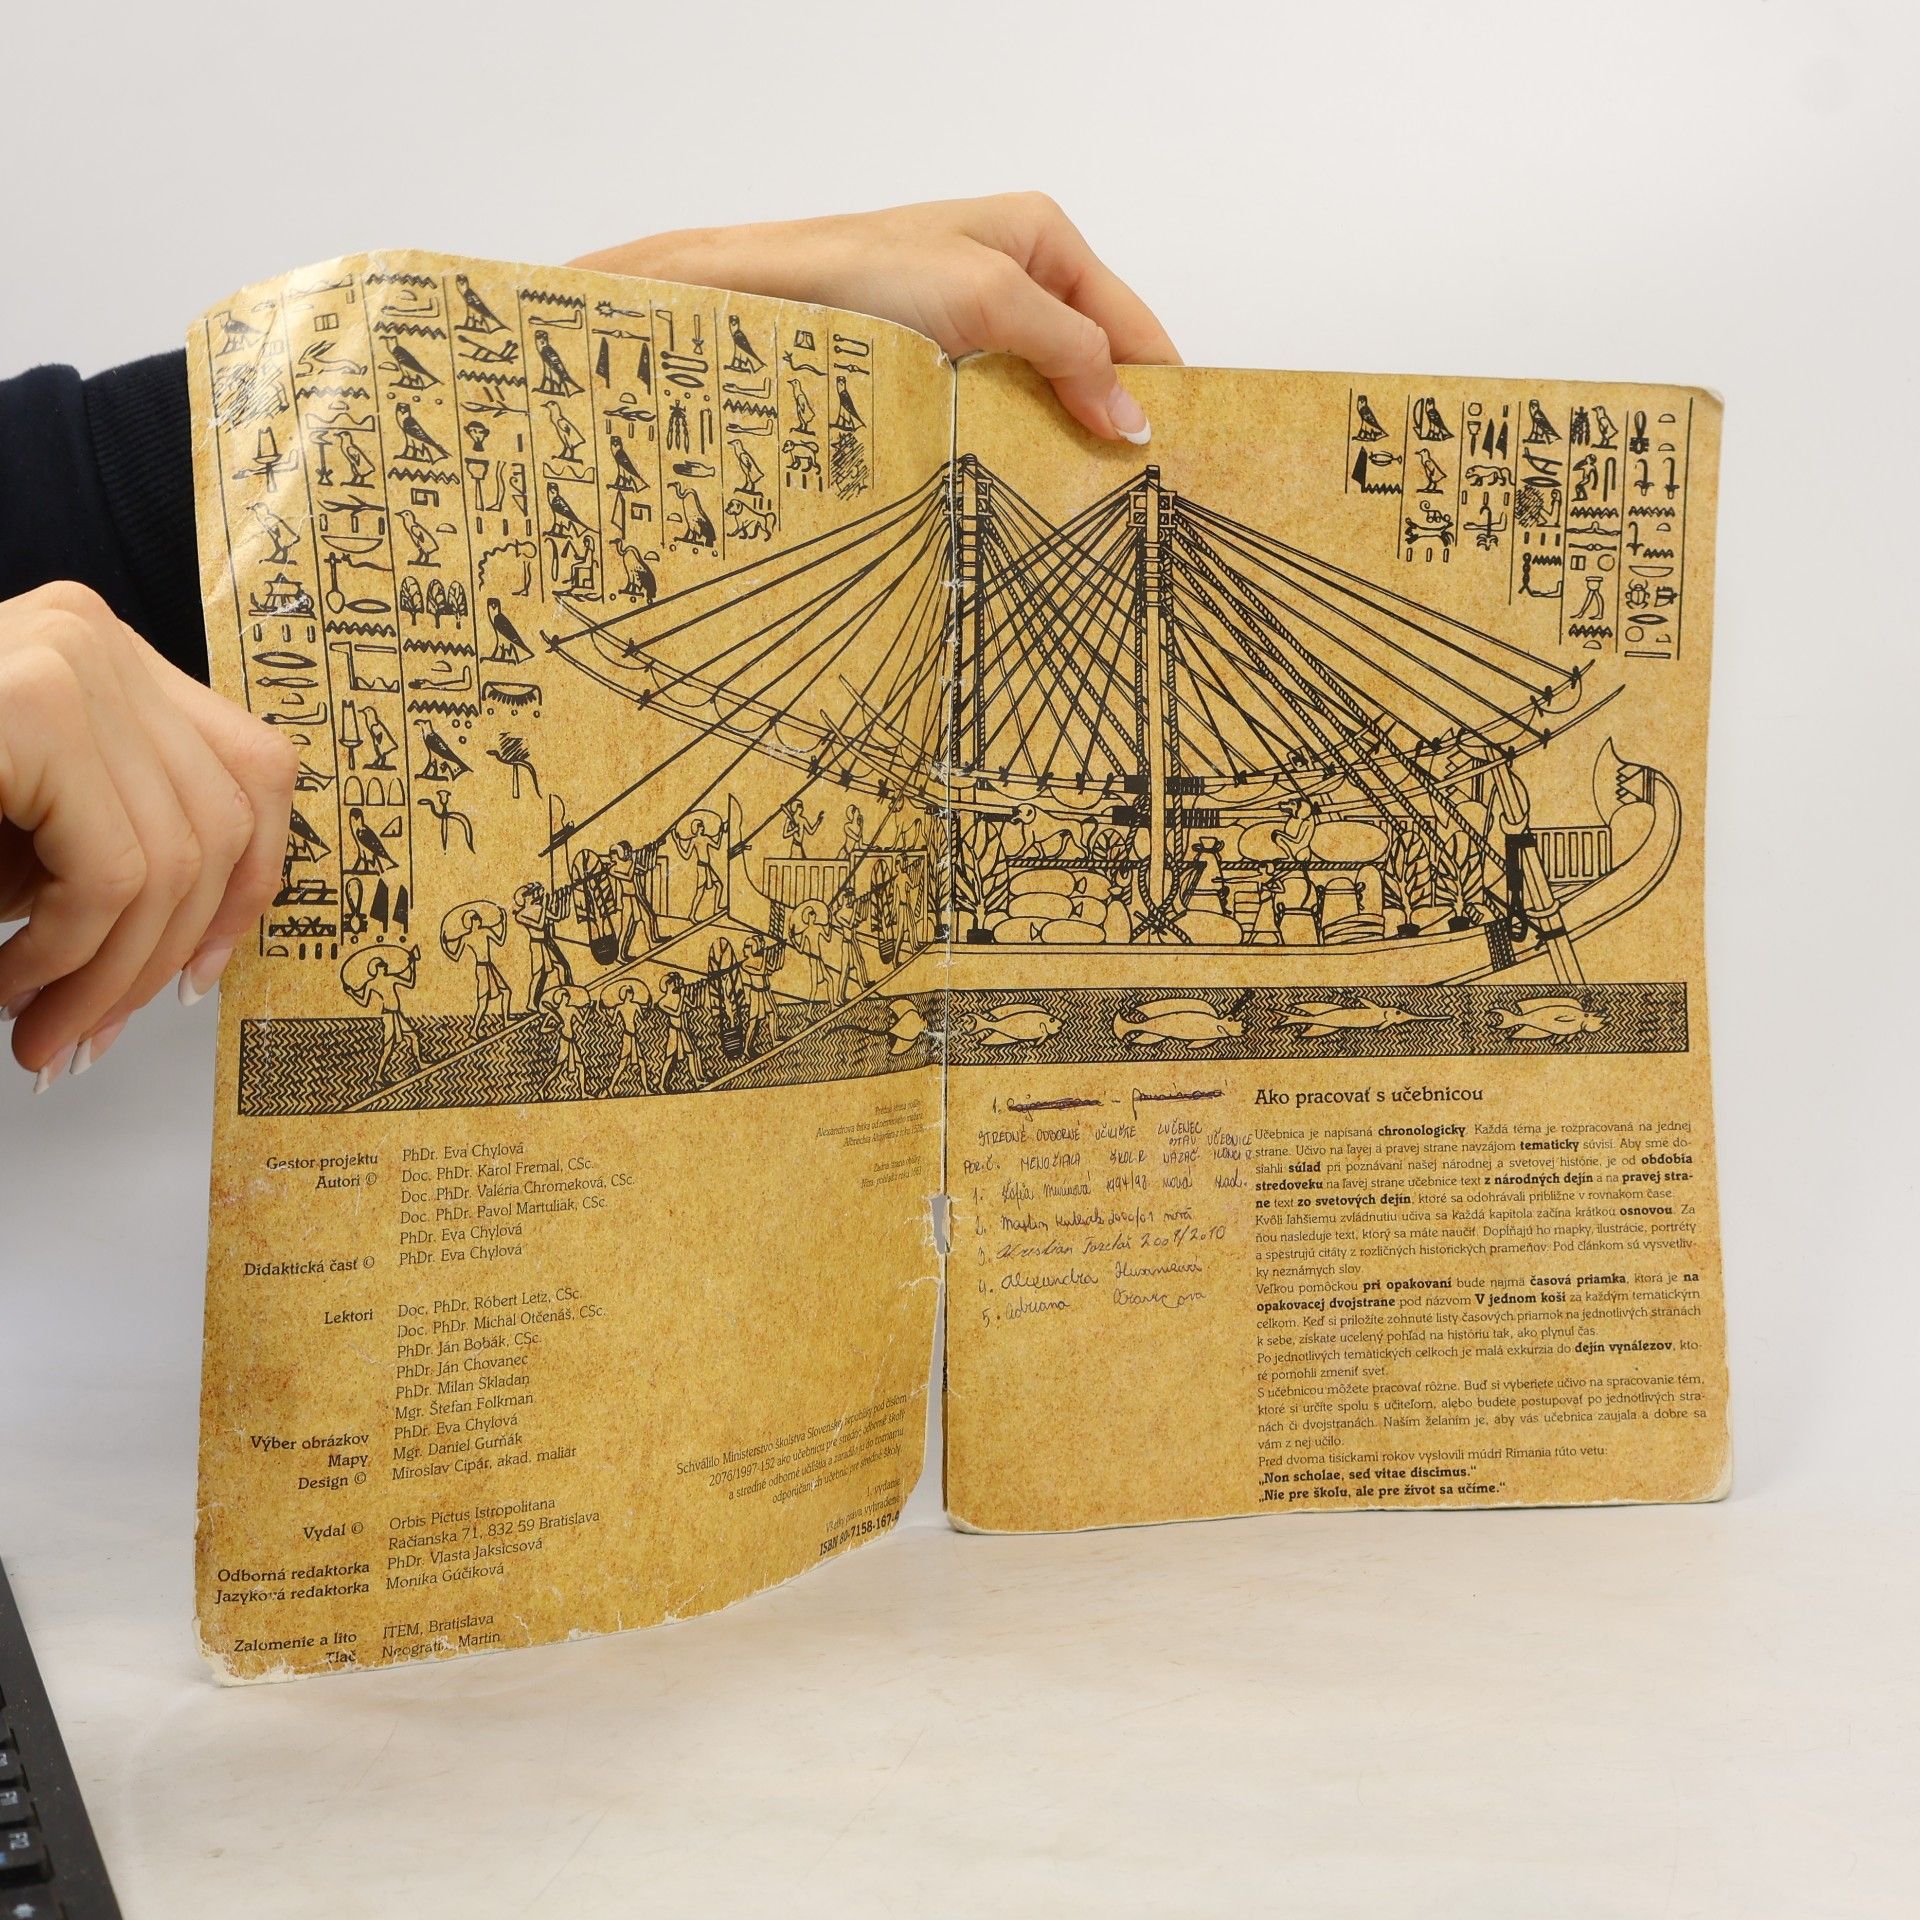 Predná strana obálky:
Alexandrova bitka od nemeckého maliara
Albrechta Altdorfera z roku 1528
Zadná strana obálky:
Gestor projektu PhDr. Eva Chylová
Autori © Doc. PhDr. Karol Fremal, CSc.
Doc. PhDr. Valéria Chromeková, CSc.
Doc. PhDr. Pavol Martuliak, CSc.
PhDr. Eva Chylová
Didaktická časť © PhDr. Eva Chylová
Lektori Doc. PhDr. Róbert Letz, CSc.
Doc. PhDr. Michal Otčenáš, CSc.
PhDr. Ján Bobák, CSc.
PhDr. Ján Chovanec
PhDr. Milan Skladan
Mgr. Štefan Folkman
Výber obrázkov PhDr. Eva Chylová
Mapy Mgr. Daniel Gurňák
Design © Miroslav Cipár, akad. maliar
Vydal © Orbis Pictus Istropolitana
Račianska 71, 832 59 Bratislava
Odborná redaktorka PhDr. Vlasta Jaksicsová
Jazyková redaktorka Monika Gúčiková
Zalomenie a lito ITEM, Bratislava
Tlač Neografia, Martin
Schválilo Ministerstvo školstva Slovenskej republiky pod číslom
2076/1997-152 ako učebnicu pre stredné odborné školy
a stredné odborné učilištia a zaradilo ju do zoznamu
odporúčaných učebníc pre stredné školy.
1. vydanie
Všetky práva vyhradené.
ISBN 80-7158-167-
1.
STREDNÉ ODBORNÉ UČILIŠTE LUČENEC
POR.Č. MENO ŽIAKA ŠKOL.R STAV UČEBNICE
1. Žofia Murínová nová
2. Martin 2000/01 nová
3. Kristián 2009/2010
4. Alexandra
5. Adriana
Ako pracovať s učebnicou
Učebnica je napísaná chronologicky. Každá téma je rozpracovaná na jednej
strane. Učivo na ľavej a pravej strane navzájom tematicky súvisí. Aby sme do-
siahli súlad pri poznávaní našej národnej a svetovej histórie, je od obdobia
stredoveku na ľavej strane učebnice text z národných dejín a na pravej stra-
ne text zo svetových dejín, ktoré sa odohrávali približne v rovnakom čase.
Kvôli ľahšiemu zvládnutiu učiva sa každá kapitola začína krátkou osnovou. Za
ňou nasleduje text, ktorý sa máte naučiť. Dopĺňajú ho mapky, ilustrácie, portréty
a spestrujú citáty z rozličných historických prameňov. Pod článkom sú vysvetliv-
ky neznámych slov.
Veľkou pomôckou pri opakovaní bude najmä časová priamka, ktorá je na
opakovacej dvojstrane pod názvom V jednom koši za každým tematickým
celkom. Keď si priložíte zohnuté listy časových priamok na jednotlivých stranách
k sebe, získate ucelený pohľad na históriu tak, ako plynul čas.
Po jednotlivých tematických celkoch je malá exkurzia do dejín vynálezov, kto-
ré pomohli zmeniť svet.
S učebnicou môžete pracovať rôzne. Buď si vyberiete učivo na spracovanie tém,
ktoré si určíte spolu s učiteľom, alebo budete postupovať po jednotlivých stra-
nách či dvojstranách. Naším želaním je, aby vás učebnica zaujala a dobre sa
vám z nej učilo.
Pred dvoma tisíckami rokov vyslovili múdri Rimania túto vetu:
„Non scholae, sed vitae discimus.“
„Nie pre školu, ale pre život sa učíme.“